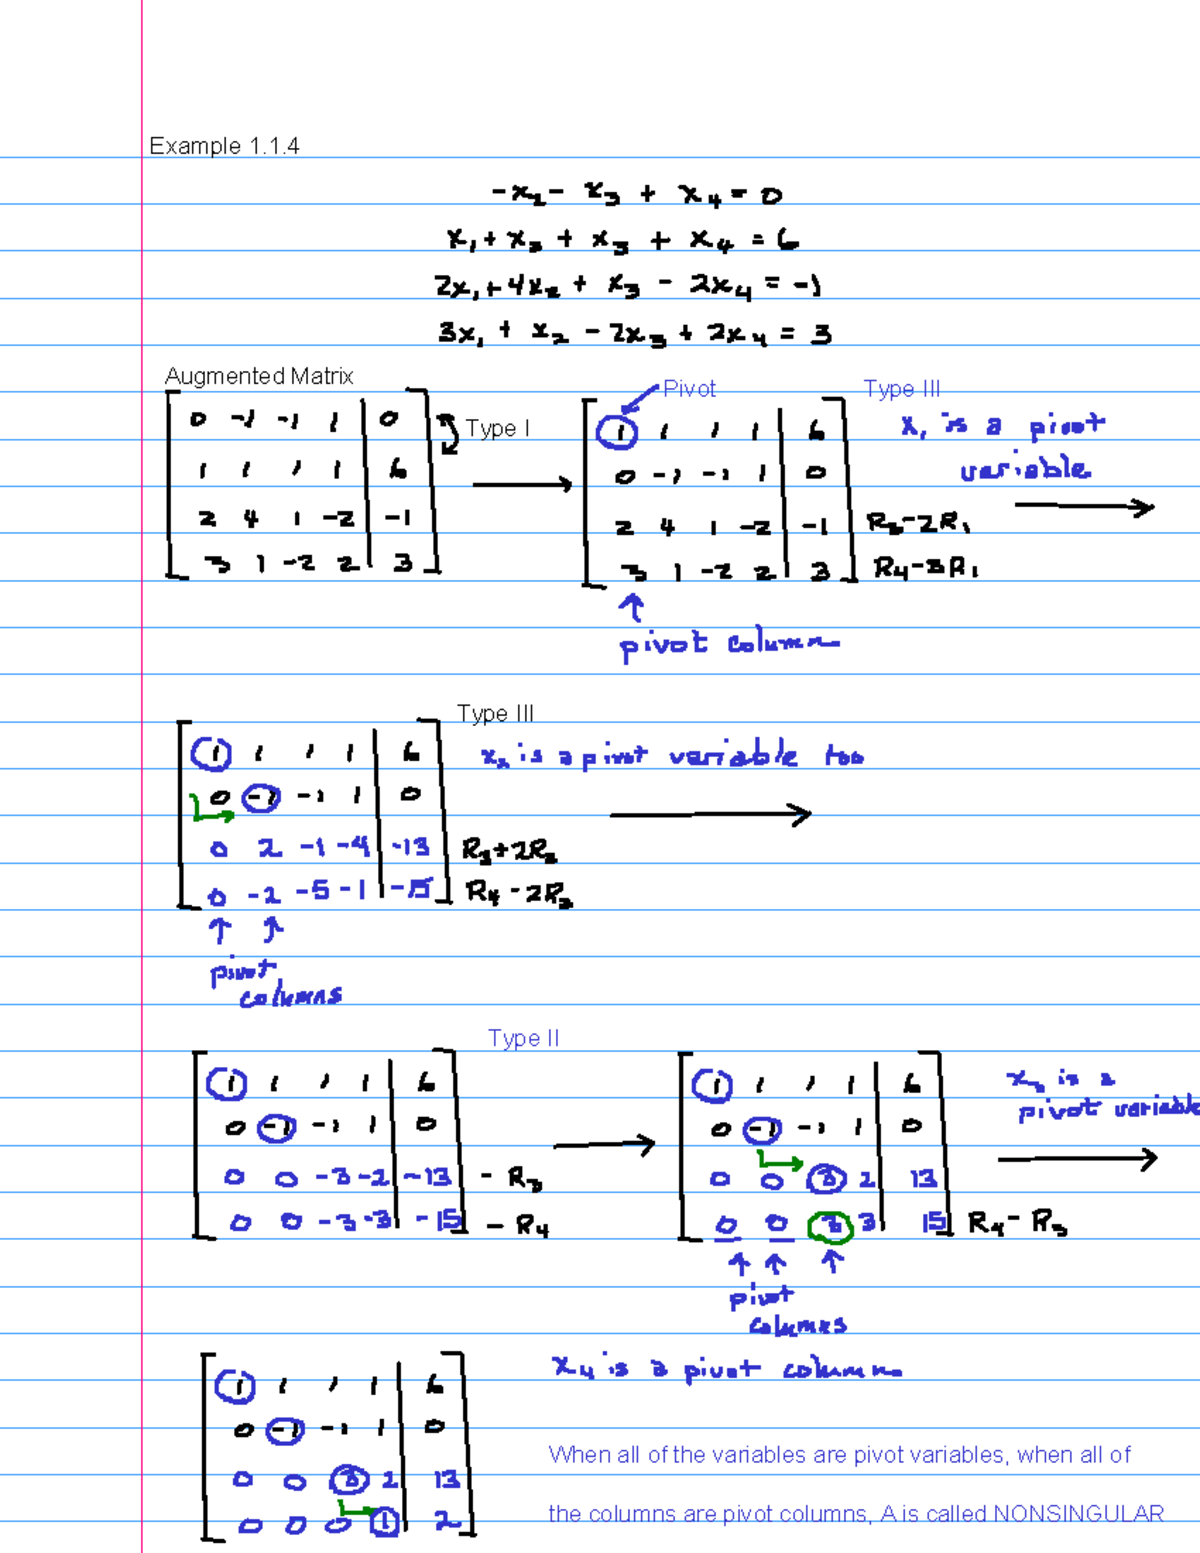 Example 1.1.4
-x₂ - x₃ + x₄ = 0
x₁ + x₂ + x₃ + x₄ = 6
2x₁ + 4x₂ + x₃ - 2x₄ = -1
3x₁ + x₂ - 2x₃ + 2x₄ = 3
Augmented Matrix
0 -1 -1 1 | 0
1 1 1 1 | 6
2 4 1 -2 | -1
3 1 -2 2 | 3
Type I
Pivot
Type III
1 1 1 1 | 6
0 -1 -1 1 | 0
2 4 1 -2 | -1 R₃-2R₁
3 1 -2 2 | 3 R₄-3R₁
x₁ is a pivot
variable
pivot column
Type III
1 1 1 1 | 6 x₂ is a pivot variable too
0 -1 -1 1 | 0
0 2 -1 -4 | -13 R₃+2R₂
0 -2 -5 -1 | -15 R₄-2R₂
pivot
columns
Type II
1 1 1 1 | 6
0 -1 -1 1 | 0
0 0 -3 -2 | -13 - R₃
0 0 -3 -3 | -15 - R₄
1 1 1 1 | 6
0 -1 -1 1 | 0
0 0 3 2 | 13
0 0 3 3 | 15 R₄- R₃
x₃ is a
pivot variable
pivot
columns
1 1 1 1 | 6
0 -1 -1 1 | 0
0 0 3 2 | 13
0 0 0 1 | 2
x₄ is a pivot column
When all of the variables are pivot variables, when all of
the columns are pivot columns, A is called NONSINGULAR